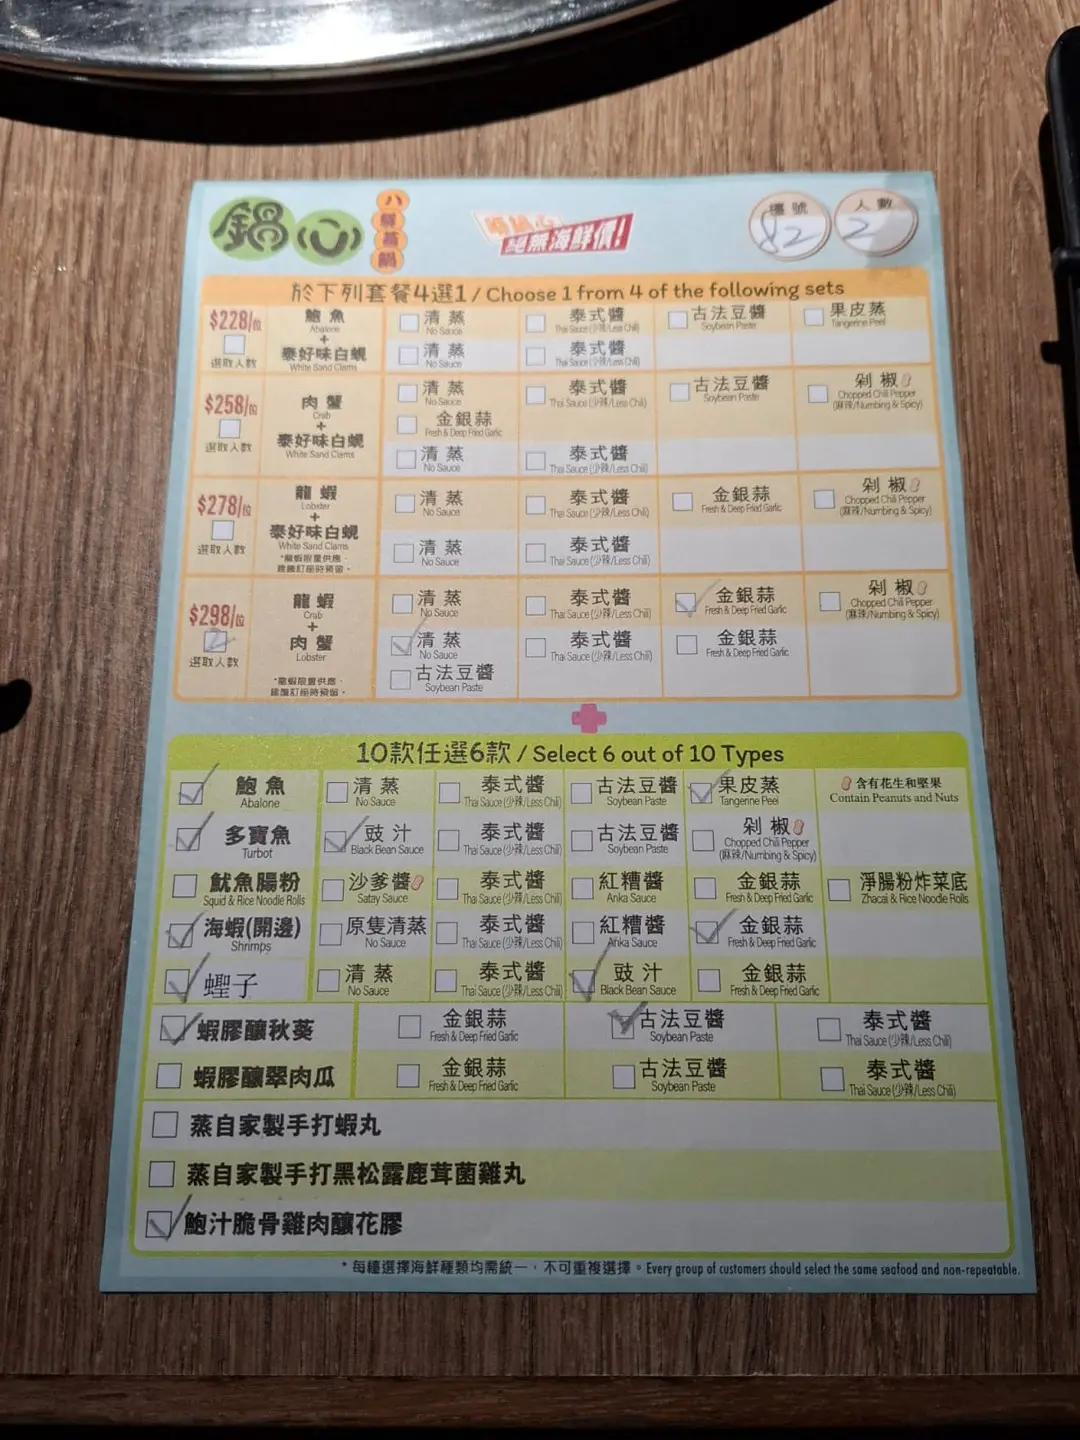 鍋心
八鮮蒸鍋
絕無海鮮價!
檯號
82
人數
2
於下列套餐4選1 / Choose 1 from 4 of the following sets
$228/位
選取人數
鮑魚
Abalone
+
泰好味白蜆
White Sand Clams
清蒸
No Sauce
泰式醬
Thai Sauce (少辣/Less Chili)
古法豆醬
Soybean Paste
果皮蒸
Tangerine Peel
清蒸
No Sauce
泰式醬
Thai Sauce (少辣/Less Chili)
$258/位
選取人數
肉蟹
Crab
+
泰好味白蜆
White Sand Clams
清蒸
No Sauce
泰式醬
Thai Sauce (少辣/Less Chili)
古法豆醬
Soybean Paste
剁椒
Chopped Chili Pepper
(麻辣/Numbing & Spicy)
金銀蒜
Fresh & Deep Fried Garlic
清蒸
No Sauce
泰式醬
Thai Sauce (少辣/Less Chili)
$278/位
選取人數
龍蝦
Lobster
+
泰好味白蜆
White Sand Clams
*龍蝦限量供應,
建議訂座時預留。
清蒸
No Sauce
泰式醬
Thai Sauce (少辣/Less Chili)
金銀蒜
Fresh & Deep Fried Garlic
剁椒
Chopped Chili Pepper
(麻辣/Numbing & Spicy)
清蒸
No Sauce
泰式醬
Thai Sauce (少辣/Less Chili)
$298/位
2
選取人數
龍蝦
Crab
+
肉蟹
Lobster
*龍蝦限量供應,
建議訂座時預留。
清蒸
No Sauce
泰式醬
Thai Sauce (少辣/Less Chili)
金銀蒜
Fresh & Deep Fried Garlic
剁椒
Chopped Chili Pepper
(麻辣/Numbing & Spicy)
清蒸
No Sauce
泰式醬
Thai Sauce (少辣/Less Chili)
金銀蒜
Fresh & Deep Fried Garlic
古法豆醬
Soybean Paste
10款任選6款 / Select 6 out of 10 Types
鮑魚
Abalone
清蒸
No Sauce
泰式醬
Thai Sauce (少辣/Less Chili)
古法豆醬
Soybean Paste
果皮蒸
Tangerine Peel
含有花生和堅果
Contain Peanuts and Nuts
多寶魚
Turbot
豉汁
Black Bean Sauce
泰式醬
Thai Sauce (少辣/Less Chili)
古法豆醬
Soybean Paste
剁椒
Chopped Chili Pepper
(麻辣/Numbing & Spicy)
魷魚腸粉
Squid & Rice Noodle Rolls
沙爹醬
Satay Sauce
泰式醬
Thai Sauce (少辣/Less Chili)
紅糟醬
Anka Sauce
金銀蒜
Fresh & Deep Fried Garlic
淨腸粉炸菜底
Zhacai & Rice Noodle Rolls
海蝦(開邊)
Shrimps
原隻清蒸
No Sauce
泰式醬
Thai Sauce (少辣/Less Chili)
紅糟醬
Anka Sauce
金銀蒜
Fresh & Deep Fried Garlic
蟶子
清蒸
No Sauce
泰式醬
Thai Sauce (少辣/Less Chili)
豉汁
Black Bean Sauce
金銀蒜
Fresh & Deep Fried Garlic
蝦膠釀秋葵
金銀蒜
Fresh & Deep Fried Garlic
古法豆醬
Soybean Paste
泰式醬
Thai Sauce (少辣/Less Chili)
蝦膠釀翠肉瓜
金銀蒜
Fresh & Deep Fried Garlic
古法豆醬
Soybean Paste
泰式醬
Thai Sauce (少辣/Less Chili)
蒸自家製手打蝦丸
蒸自家製手打黑松露鹿茸菌雞丸
鮑汁脆骨雞肉釀花膠
* 每檯選擇海鮮種類均需統一,不可重複選擇。Every group of customers should select the same seafood and non-repeatable.